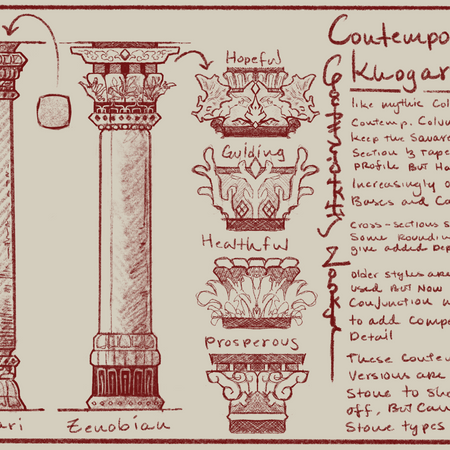 Contempo
Khogar
Hopeful
Guiding
Healthful
Prosperous
ari
Zenobian
like mythic Col
Contemp. Colu
Keep the Square
Section & Tape
Profile But Ha
Increasingly o
Bases and Ca
Cross-sections s
Some Roundin
give added Dep
older styles are
used But Now
Conjunction w
to add Comp
Detail
These Conte
Versions are
Stone to Sh
off, But Can
Stone types